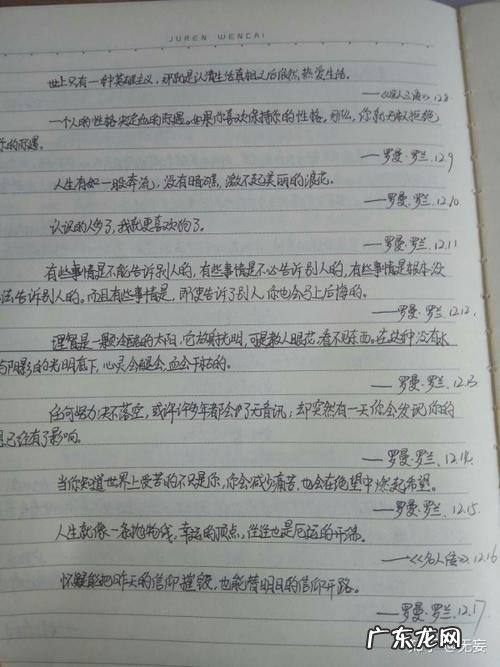 JUREN WENCAI
世上只有一种英雄主义，那就是认清生活真相之后依然热爱生活。
12.8
一个人的性格决定他的际遇。如果你喜欢保持你的性格，那么，你就无权拒绝
你的际遇。
—罗曼·罗兰.12.9
人生有如一股奔流，没有暗礁，激不起美丽的浪花。
—罗曼·罗兰.12.10
认识的人多了，我就更喜欢狗了。
—罗曼·罗兰.12.11
有些事情是不能告诉别人的，有些事情是不必告诉别人的，有些事情是根本没
法告诉别人的。而且有些事情是，即使告诉了别人，你也会马上后悔的。
—罗曼·罗兰.12.12.
理智是一颗冷酷的太阳，它放射光明，可是教人眼花，看不见东西。在这种没有水
与阴影的光明底下，心灵会褪色，血会干枯的。
—罗曼·罗兰.12.13
任何努力决不落空，或许许多年都会杳无音讯；却突然有一天你会发现你的
思想已经有了影响。
—罗曼·罗兰.12.14.
当你知道世界上受苦的不只是你，你会减少痛苦，也会在绝望中燃起希望。
—罗曼·罗兰.12.15.
人生就像一条抛物线，幸运的顶点，往往也是厄运的开端。
—《名人传》.12.16
怀疑能把昨天的信仰摧毁，也能替明日的信仰开路。
—罗曼·罗兰.12.17
知乎 @无妄
广东龙网